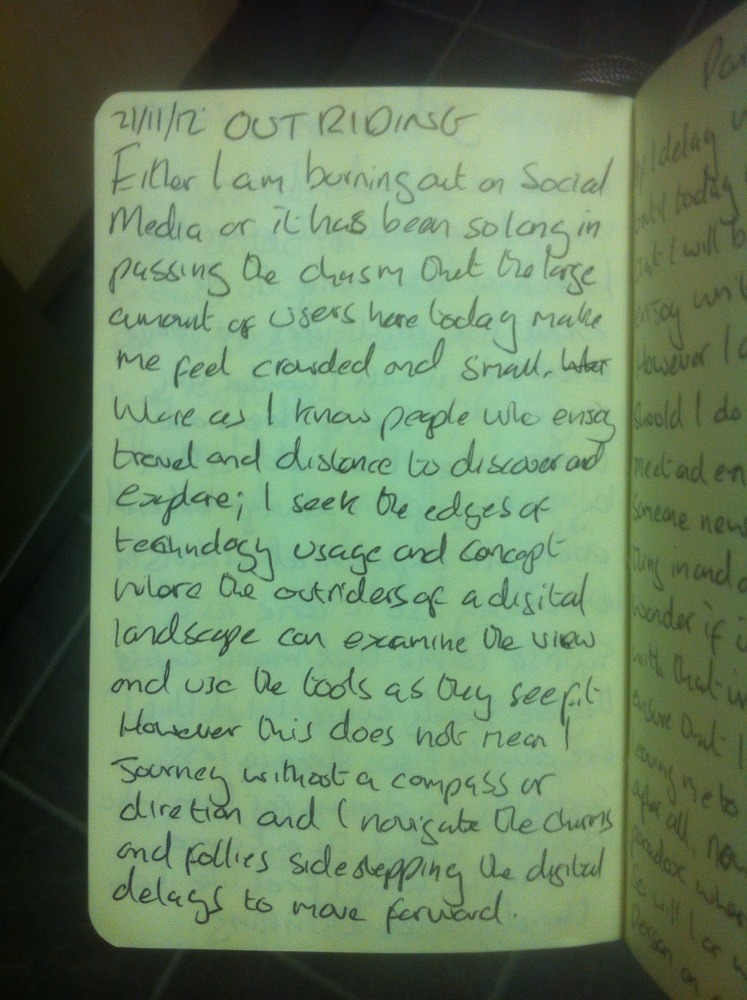 21/11/12 OUTRIDING
Either I am burning out on Social
Media or it has been so long in
passing the chasm that the large
amount of users here today make
me feel crowded and small.
Where as I know people who enjoy
travel and distance to discover and
explore; I seek the edges of
technology usage and concept
where the outriders of a digital
landscape can examine the view
and use the tools as they see fit
However this does not mean I
Journey without a compass or
diretion and I navigate the charms
and follies sidestepping the digital
delays to move forward.
delay
until today
that I will
enjoy
However I
should I do
meet and en
someone new
thing in and
wonder if
with that
ensure that I
leaving me to
after all. Now
paradox where
so will I or
Person or